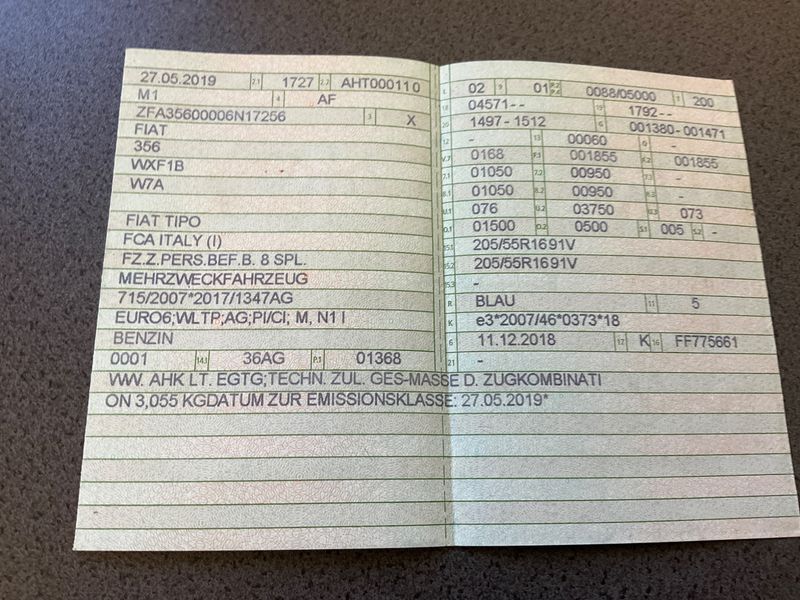 27.05.2019 2.1 1727 2.2 AHT000110
M1 4 AF
ZFA35600006N17256 3 X
FIAT
356
WXF1B
W7A
FIAT TIPO
FCA ITALY (I)
FZ.Z.PERS.BEF.B. 8 SPL.
MEHRZWECKFAHRZEUG
715/2007*2017/1347AG
EURO6;WLTP;AG;PI/CI; M, N1 I
BENZIN
0001 14.1 36AG P.1 01368
L 02 9 01 P.2 P.4 0088/05000 T 200
18 04571-- 19 1792--
20 1497-1512 G 001380-001471
12 - 13 00060 Q -
V.7 0168 F.1 001855 F.2 001855
7.1 01050 7.2 00950 7.3 -
8.1 01050 8.2 00950 8.3 -
U.1 076 U.2 03750 U.3 073
O.1 01500 O.2 0500 S.1 005 S.2 -
15.1 205/55R1691V
15.2 205/55R1691V
15.3 -
R BLAU 11 5
K e3*2007/46*0373*18
6 11.12.2018 17 K 16 FF775661
21 -
VWV. AHK LT. EGTG;TECHN. ZUL. GES-MASSE D. ZUGKOMBINATI
ON 3,055 KGDATUM ZUR EMISSIONSKLASSE: 27.05.2019*